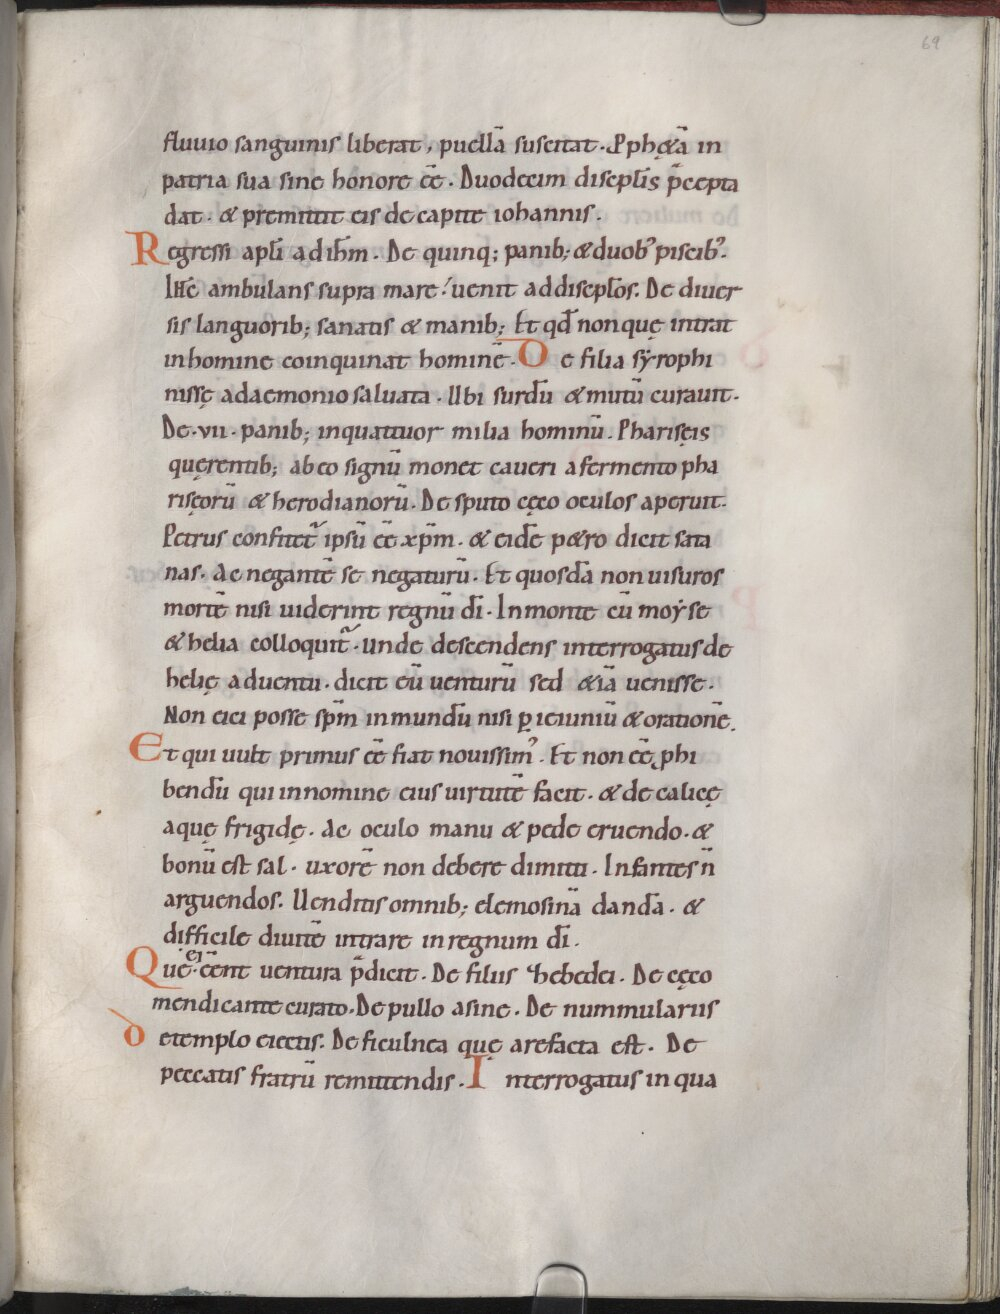 69
fluuio sanguinis liberat, puellā suscitat. Pph&ā in
patria sua sine honore eē. Duodecim discipl̄is p̄cepta
dat. & premittit eis de capite iohannis.
Regressi apl̄i ad ih̄m. De quinq; panib; & duob᾽ piscib᾽.
IHC̄ ambulans supra mare uenit ad discipl̄os. De diuer
sis languorib; sanatis & manib; Et qđ non quę intrat
in homine coinquinat hominē. De filia sẏrophi
nissę a daemonio saluata. Ubi surdū & mutū curauit.
De .vii. panib; in quattuor milia hominū. Pharisęis
quęrentib; ab eo signū monet caueri a fermento pha
risęorū & herodianorū. De sputo cęco oculos aperuit.
Petrus confitet̄ ipsū eē xp̄m. & eidē p&ro dicit sata
nas. Ac negantē se negaturū. Et quosdā non uisuros
mortē nisi uiderint regnū dī. In monte cū moẏse
& helia colloquit̄. unde descendens interrogatus de
helię aduentu. dicit eū venturū sed &iā uenisse.
Non eici posse sp̄m inmundū nisi ꝑ ieiuniū & orationē.
Et qui uult primus eē fiat nouissim᾽. Et non eē ꝓhi
bendū qui in nomine eius uirtutē facit. & de calicę
aquę frigidę. Ac oculo manu & pede eruendo. &
bonū est sal. uxorē non debere dimitti. Infantes n̄
arguendos. Uenditis omnib; elemosinā dandā. &
difficile diuitē intrare in regnum dī.
Quę ei cēnt ventura p̄dicit. De filiis zebedei. De cęco
mendicante curato. De pullo asine. De nummulariis
de templo eiectis. De ficulnea quę arefacta est. De
peccatis fratrū remittendis. Interrogatus in qua